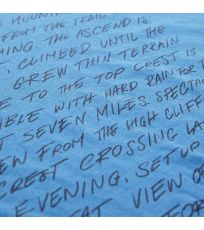 MOUNTAI
FROM THE TRAIL
MING THE ASCEND IS
, CLIMBED UNTIL THE
GREW THIN TERRAIN
E TO THE TOP CREST IS
ABLE WITH HARD RAIN FOR T
T SEVEN MILES. SPECTAC
EW FROM THE HIGH CLIFF
CREST CROSSING LA
EVENING, SET UP
AT VIEW OF
FOR